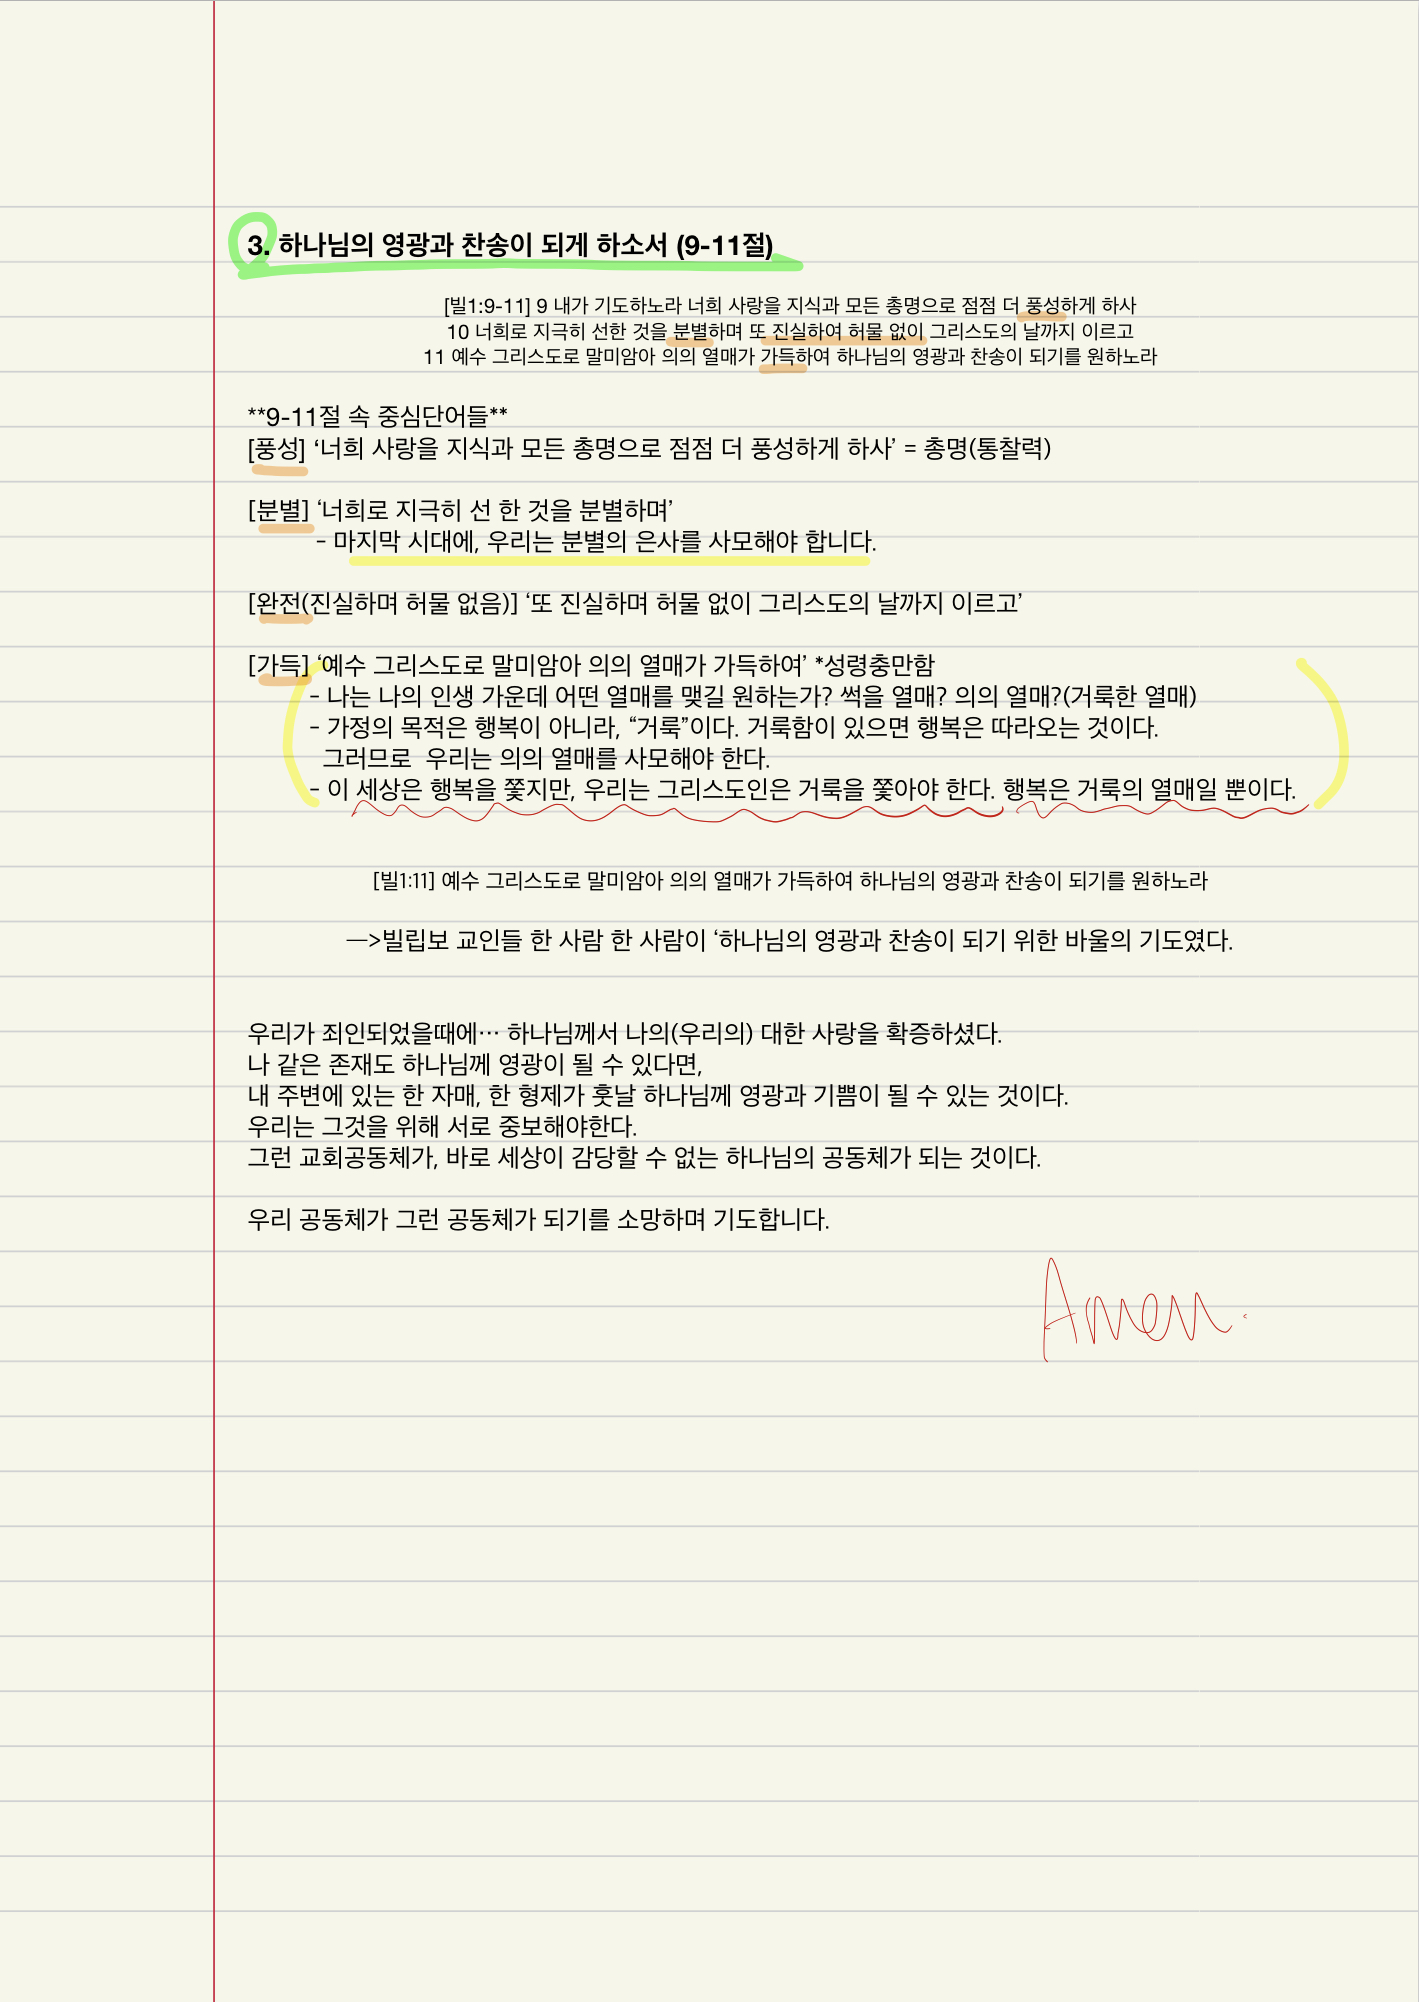 3. 하나님의 영광과 찬송이 되게 하소서 (9-11절)
[빌1:9-11] 9 내가 기도하노라 너희 사랑을 지식과 모든 총명으로 점점 더 풍성하게 하사
10 너희로 지극히 선한 것을 분별하며 또 진실하여 허물 없이 그리스도의 날까지 이르고
11 예수 그리스도로 말미암아 의의 열매가 가득하여 하나님의 영광과 찬송이 되기를 원하노라
**9-11절 속 중심단어들**
[풍성] ‘너희 사랑을 지식과 모든 총명으로 점점 더 풍성하게 하사’ = 총명(통찰력)
[분별] ‘너희로 지극히 선 한 것을 분별하며’
- 마지막 시대에, 우리는 분별의 은사를 사모해야 합니다.
[완전(진실하며 허물 없음)] ‘또 진실하며 허물 없이 그리스도의 날까지 이르고’
[가득] ‘예수 그리스도로 말미암아 의의 열매가 가득하여’ *성령충만함
- 나는 나의 인생 가운데 어떤 열매를 맺길 원하는가? 썩을 열매? 의의 열매?(거룩한 열매)
- 가정의 목적은 행복이 아니라, “거룩”이다. 거룩함이 있으면 행복은 따라오는 것이다.
그러므로  우리는 의의 열매를 사모해야 한다.
- 이 세상은 행복을 쫓지만, 우리는 그리스도인은 거룩을 쫓아야 한다. 행복은 거룩의 열매일 뿐이다.
[빌1:11] 예수 그리스도로 말미암아 의의 열매가 가득하여 하나님의 영광과 찬송이 되기를 원하노라
—>빌립보 교인들 한 사람 한 사람이 ‘하나님의 영광과 찬송이 되기 위한 바울의 기도였다.
우리가 죄인되었을때에… 하나님께서 나의(우리의) 대한 사랑을 확증하셨다.
나 같은 존재도 하나님께 영광이 될 수 있다면,
내 주변에 있는 한 자매, 한 형제가 훗날 하나님께 영광과 기쁨이 될 수 있는 것이다.
우리는 그것을 위해 서로 중보해야한다.
그런 교회공동체가, 바로 세상이 감당할 수 없는 하나님의 공동체가 되는 것이다.
우리 공동체가 그런 공동체가 되기를 소망하며 기도합니다.
Amen.